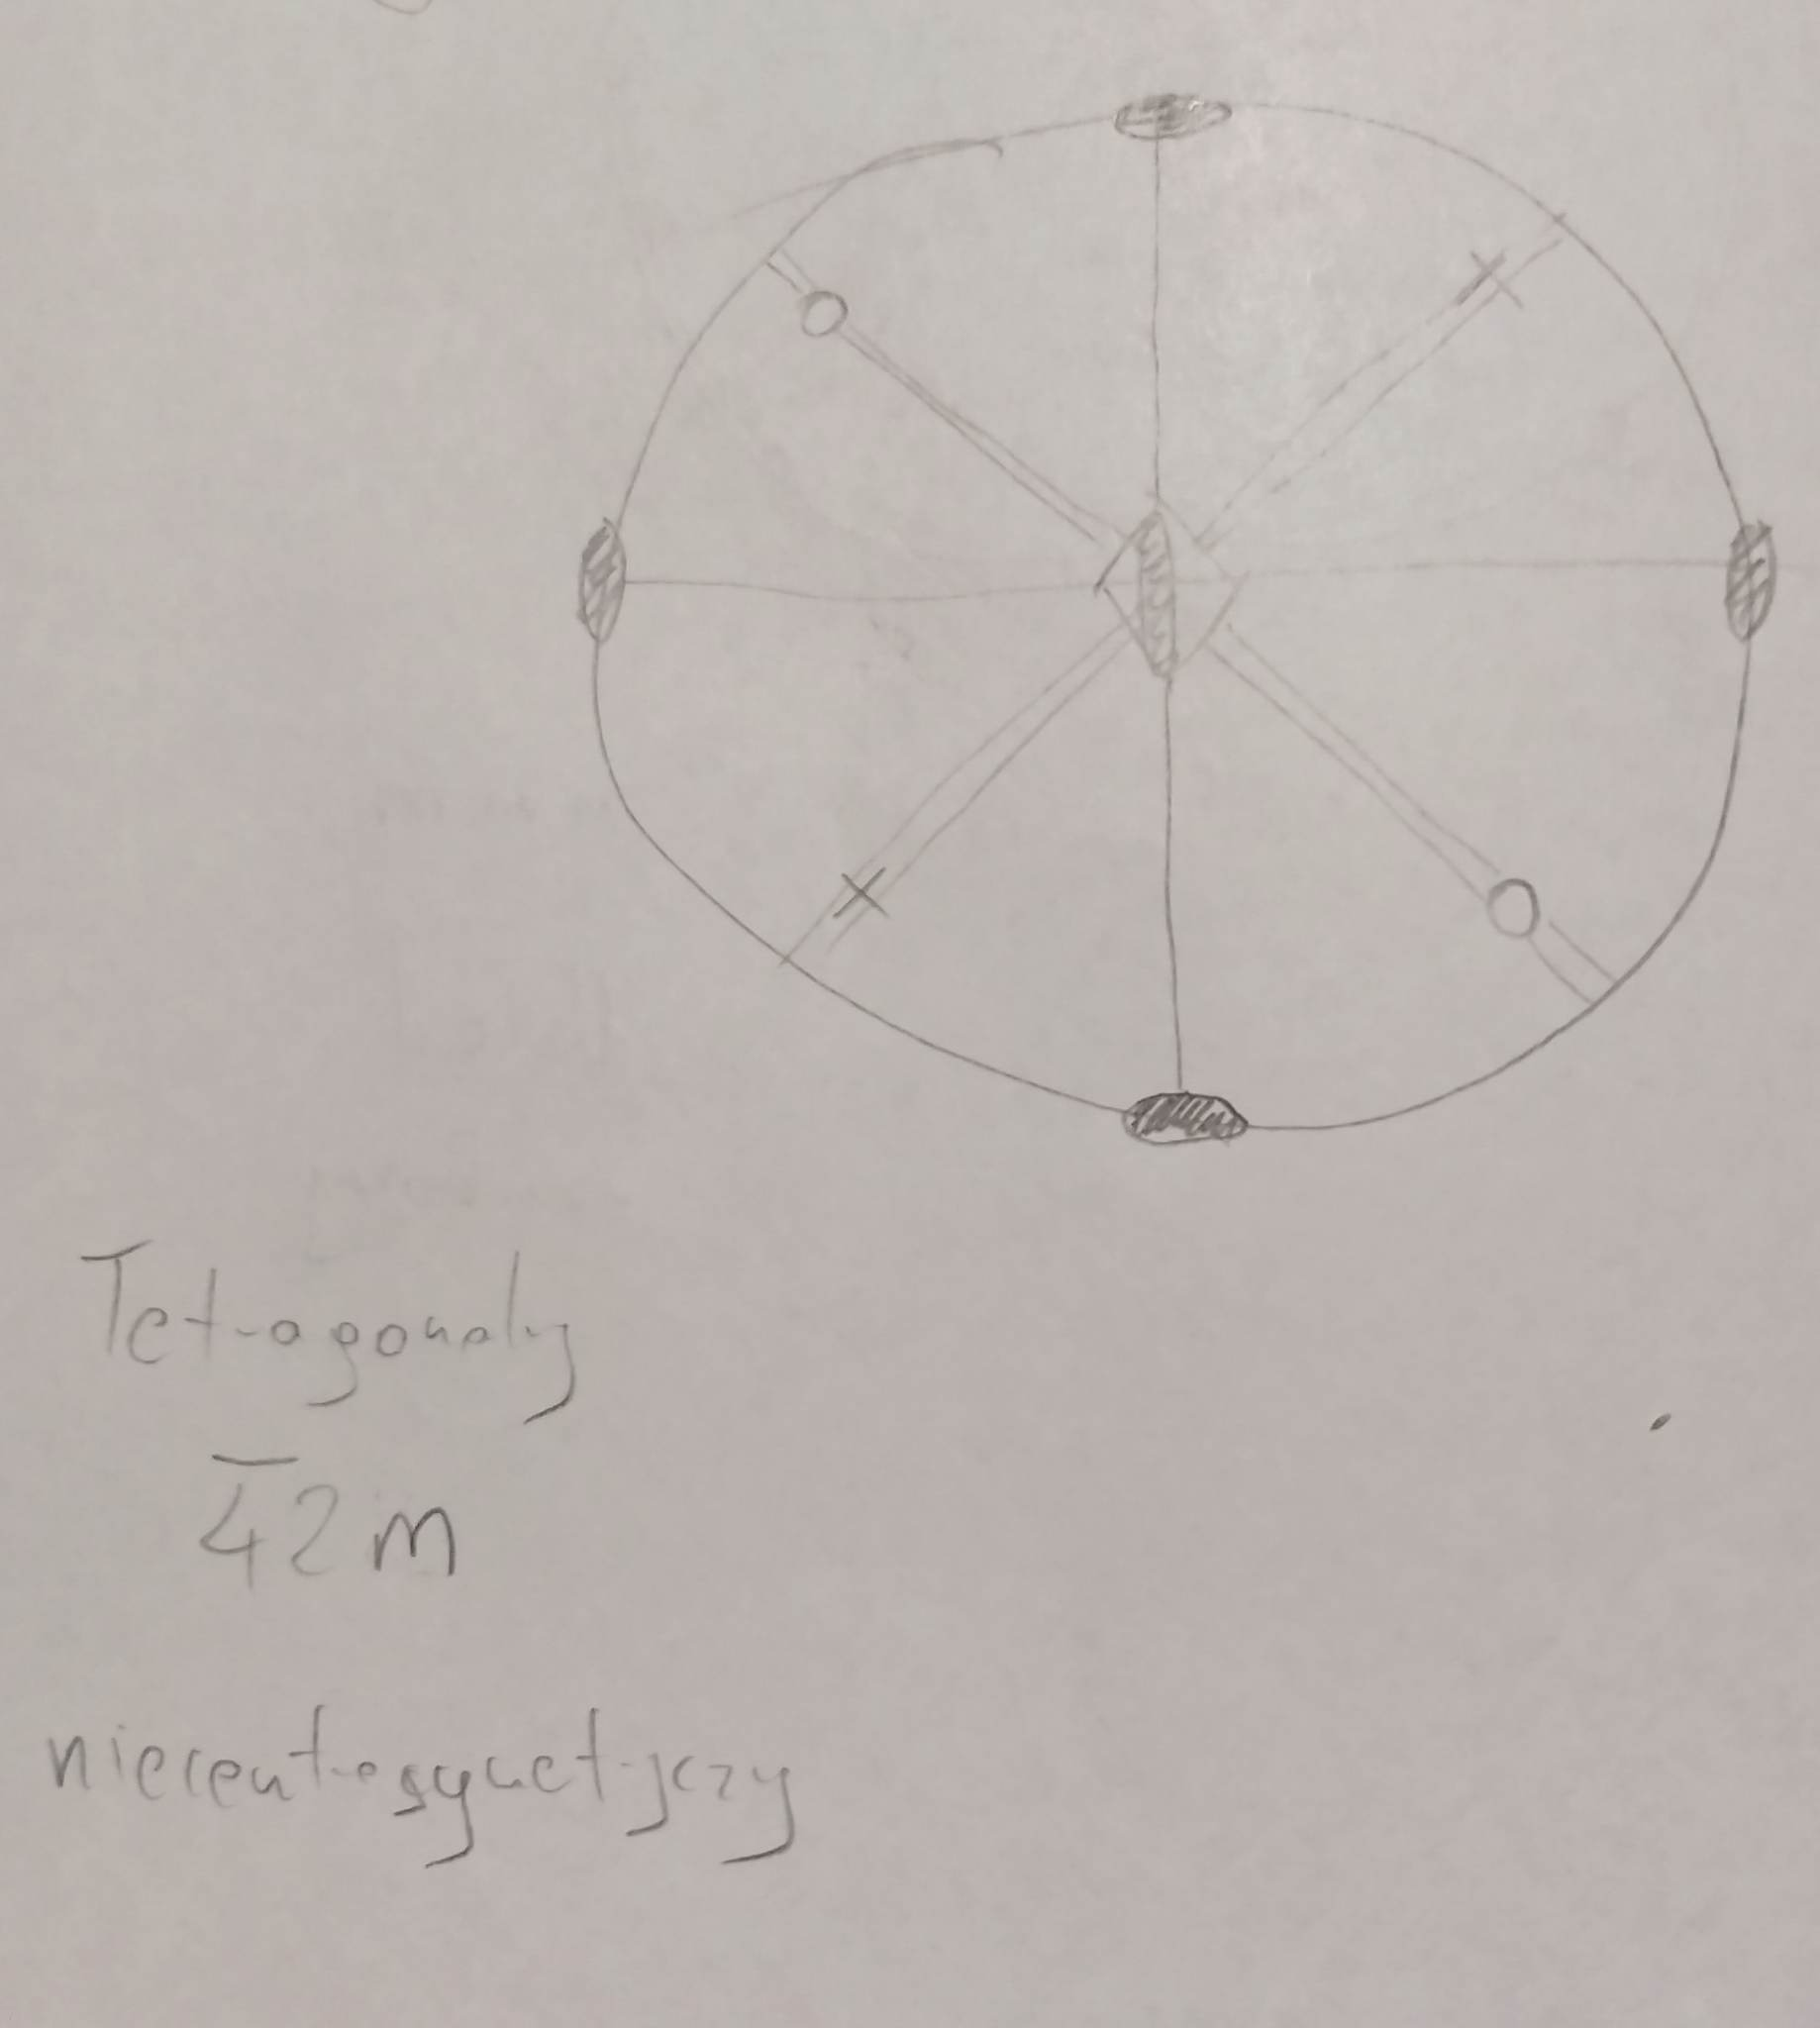 Tetragonalny
4̅2m
niecentrosymetryczny